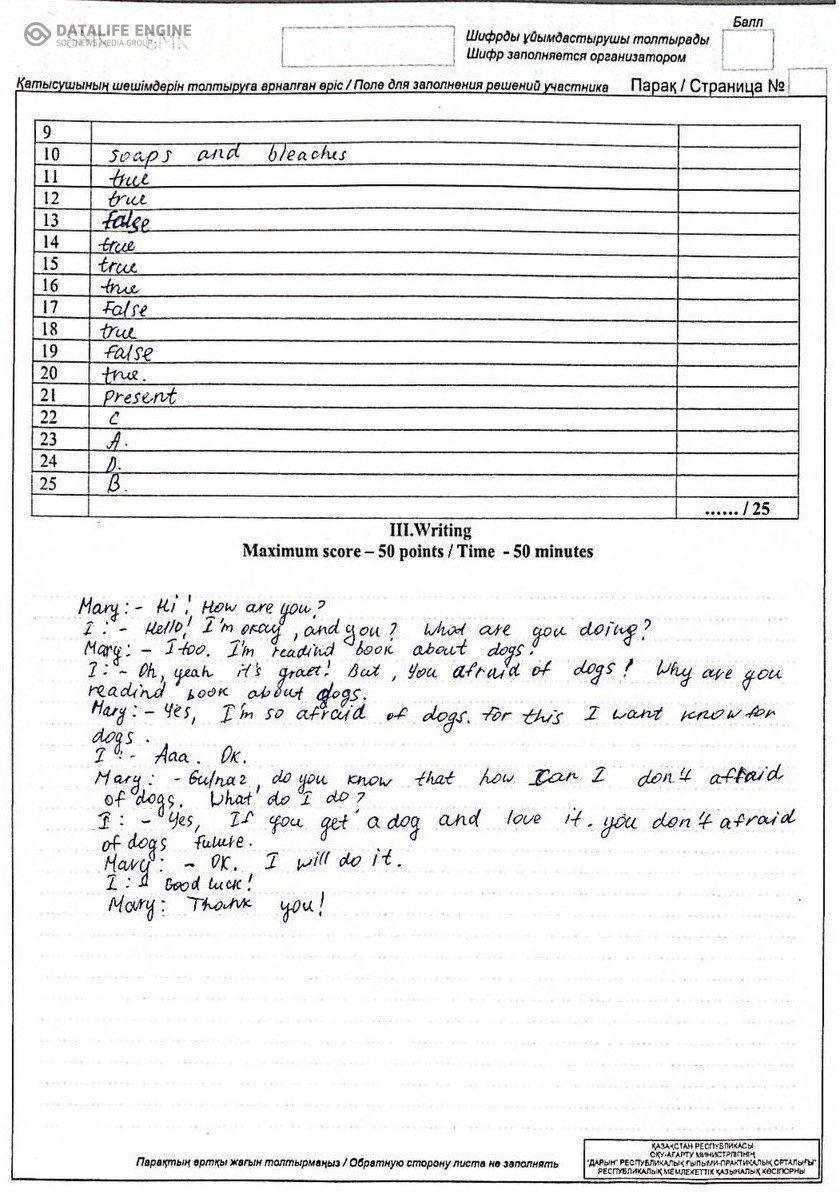 DATALIFE ENGINE
SOFTNEWS MEDIA GROUP
Балл
Шифрды ұйымдастырушы толтырады
Шифр заполняется организатором
Қатысушының шешімдерін толтыруға арналған өріс / Поле для заполнения решений участника Парақ / Страница №
9
10 soaps and bleaches
11 true
12 true
13 false
14 true
15 true
16 true
17 False
18 true
19 False
20 true.
21 present
22 C
23 A.
24 D.
25 B.
...... / 25
III.Writing
Maximum score – 50 points / Time - 50 minutes
Mary: - Hi! How are you?
I: - Hello! I'm okay, and you? What are you doing?
Mary: - I too. I'm readind book about dogs.
I: - Oh, yeah it's graet! But, you afraid of dogs! Why are you
readind book about dogs.
Mary: - Yes, I'm so afraid of dogs. For this I want know for
dogs.
I: - Aaa. OK.
Mary: - Gulnaz, do you know that how can I don't afraid
of dogs. What do I do?
I: - Yes, If you get a dog and love it. you don't afraid
of dogs future.
Mary: - OK. I will do it.
I: Good luck!
Mary: Thank you!
Парақтың артқы жағын толтырмаңыз / Обратную сторону листа не заполнять
ҚАЗАҚСТАН РЕСПУБЛИКАСЫ
ОҚУ-АҒАРТУ МИНИСТРЛІГІНІҢ
"ДАРЫН" РЕСПУБЛИКАЛЫҚ ҒЫЛЫМИ-ПРАКТИКАЛЫҚ ОРТАЛЫҒЫ"
РЕСПУБЛИКАЛЫҚ МЕМЛЕКЕТТІК ҚАЗЫНАЛЫҚ КӘСІПОРНЫ